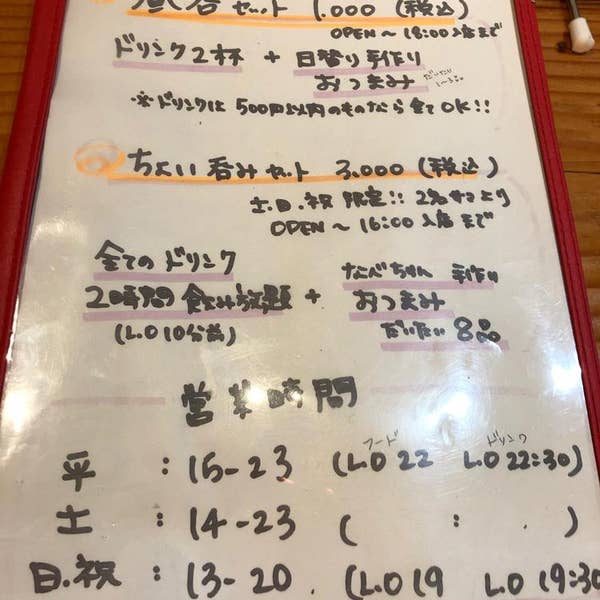 呑セット 1.000 (税込)
OPEN〜18:00入店まで
ドリンク2杯 + 日替り手作り
おつまみ だいたい
※ドリンクは500円以内のものなら全てOK!!
ちょい呑みセット 3.000 (税込)
土.日.祝 限定!! 2名サマより
OPEN〜16:00入店まで
全てのドリンク
2時間飲み放題 + なべちゃん 手作り
おつまみ
(L.O 10分前) だいたい 8品
営業時間
フード ドリンク
平 : 15-23 (L.O 22 L.O 22:30)
土 : 14-23 ( : . )
日.祝 : 13-20 . (L.O 19 L.O 19:30